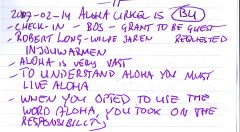 2009-02-14 ALOHA URKEL IS B4
- CHECK-IN - BOS - GRANT TO BE GUEST
- ROBERT LONG - WILHE JAREN REQUESTED
IN JOUWARMEN
- ALOHA IS VERY VAST
- TO UNDERSTAND ALOHA YOU MUST
LIVE ALOHA
- WHEN YOU OPTED TO USE THE
WORD ALOHA, YOU TOOK ON THE
RESPONSIBILITY